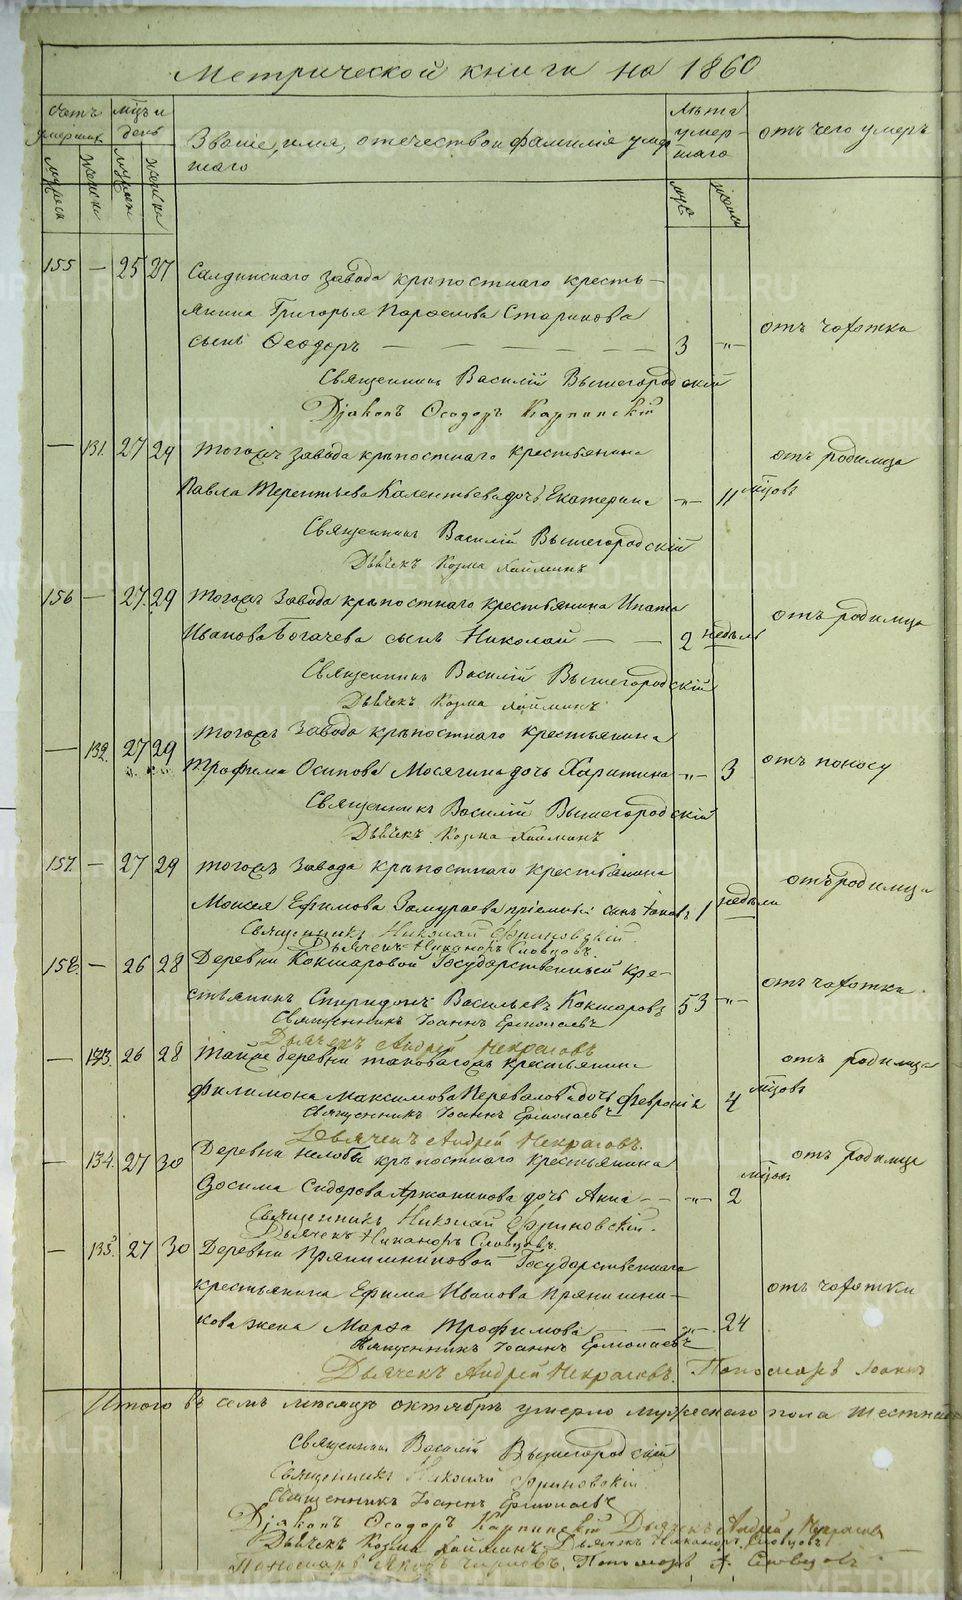 Метрической книги на 1860
Счетъ умершихъ
мцъ и день
Званіе, имя, отечество и фамилія умер-
шаго
лѣта умер-
шаго
отъ чего умеръ
155 — 25 27 Салдинскаго завода крѣпостнаго кресть-
янина Григорья Старикова
сынъ Ѳеодоръ — 3 —"— отъ чахотки
Священникъ Василій Вышегородскій
Діаконъ Ѳеодоръ Карпинскій
— 131. 27 29 тогожъ завода крѣпостнаго крестьянина отъ родимца
Павла Терентьева дочь Екатерина —"— 11 мцовъ
Священникъ Василій Вышегородскій
Дьячекъ Козма
156 — 27 29 тогожъ завода крѣпостнаго крестьянина Ипата отъ родимца
Иванова Богачева сынъ Николай — 2 недѣль
Священникъ Василій Вышегородскій
Дьячекъ Козма
— 132. 27 29 тогожъ завода крѣпостнаго крестьянина отъ поносу
Трофима Осипова Мосягина дочь Харитина —"— 3
Священникъ Василій Вышегородскій
Дьячекъ Козма
157. — 27 29 тогожъ завода крѣпостнаго крестьянина отъ родимца
Моисея Ефимова Замураева сынъ Іаковъ 1 недѣли
Священникъ Николай
Дьячекъ Никаноръ Словцовъ.
158. — 26 28 Деревни Кокшаровой Государственный кре-
стьянинъ Спиридонъ Васильевъ Кокшаровъ 53 —"— отъ чахотки.
Священникъ Іоаннъ Ермолаевъ
Дьячекъ Андрей Некрасовъ
— 133. 26 28 тойже деревни таковагожъ крестьянина отъ родимца
Филимона Максимова Перевалова дочь Февронія 4 мцовъ
Священникъ Іоаннъ Ермолаевъ
Дьячекъ Андрей Некрасовъ.
— 134. 27 30 Деревни Нелобы крѣпостнаго крестьянина отъ родимца
Зосима Сидорова дочь Анна — —"— 2 мцов
Священникъ Николай
Дьячекъ Никаноръ Словцовъ.
— 135. 27 30 Деревни Прянишниковой Государственнаго
крестьянина Ефима Иванова Прянишни- отъ чахотки
кова жена Марѳа Трофимова — 24
Священникъ Іоаннъ Ермолаевъ
Дьячекъ Андрей Некрасовъ. Пономарь Іоаннъ
Итого въ семъ мѣсяцѣ октябрѣ умерло мужескаго пола
Священникъ Василій Вышегородскій
Священникъ Николай
Священникъ Іоаннъ Ермолаевъ
Діаконъ Ѳеодоръ Карпинскій Дьячекъ Андрей Некрасовъ
Дьячекъ Козма Дьячекъ Никаноръ Словцовъ
Пономарь Яковъ Пономарь Словцовъ